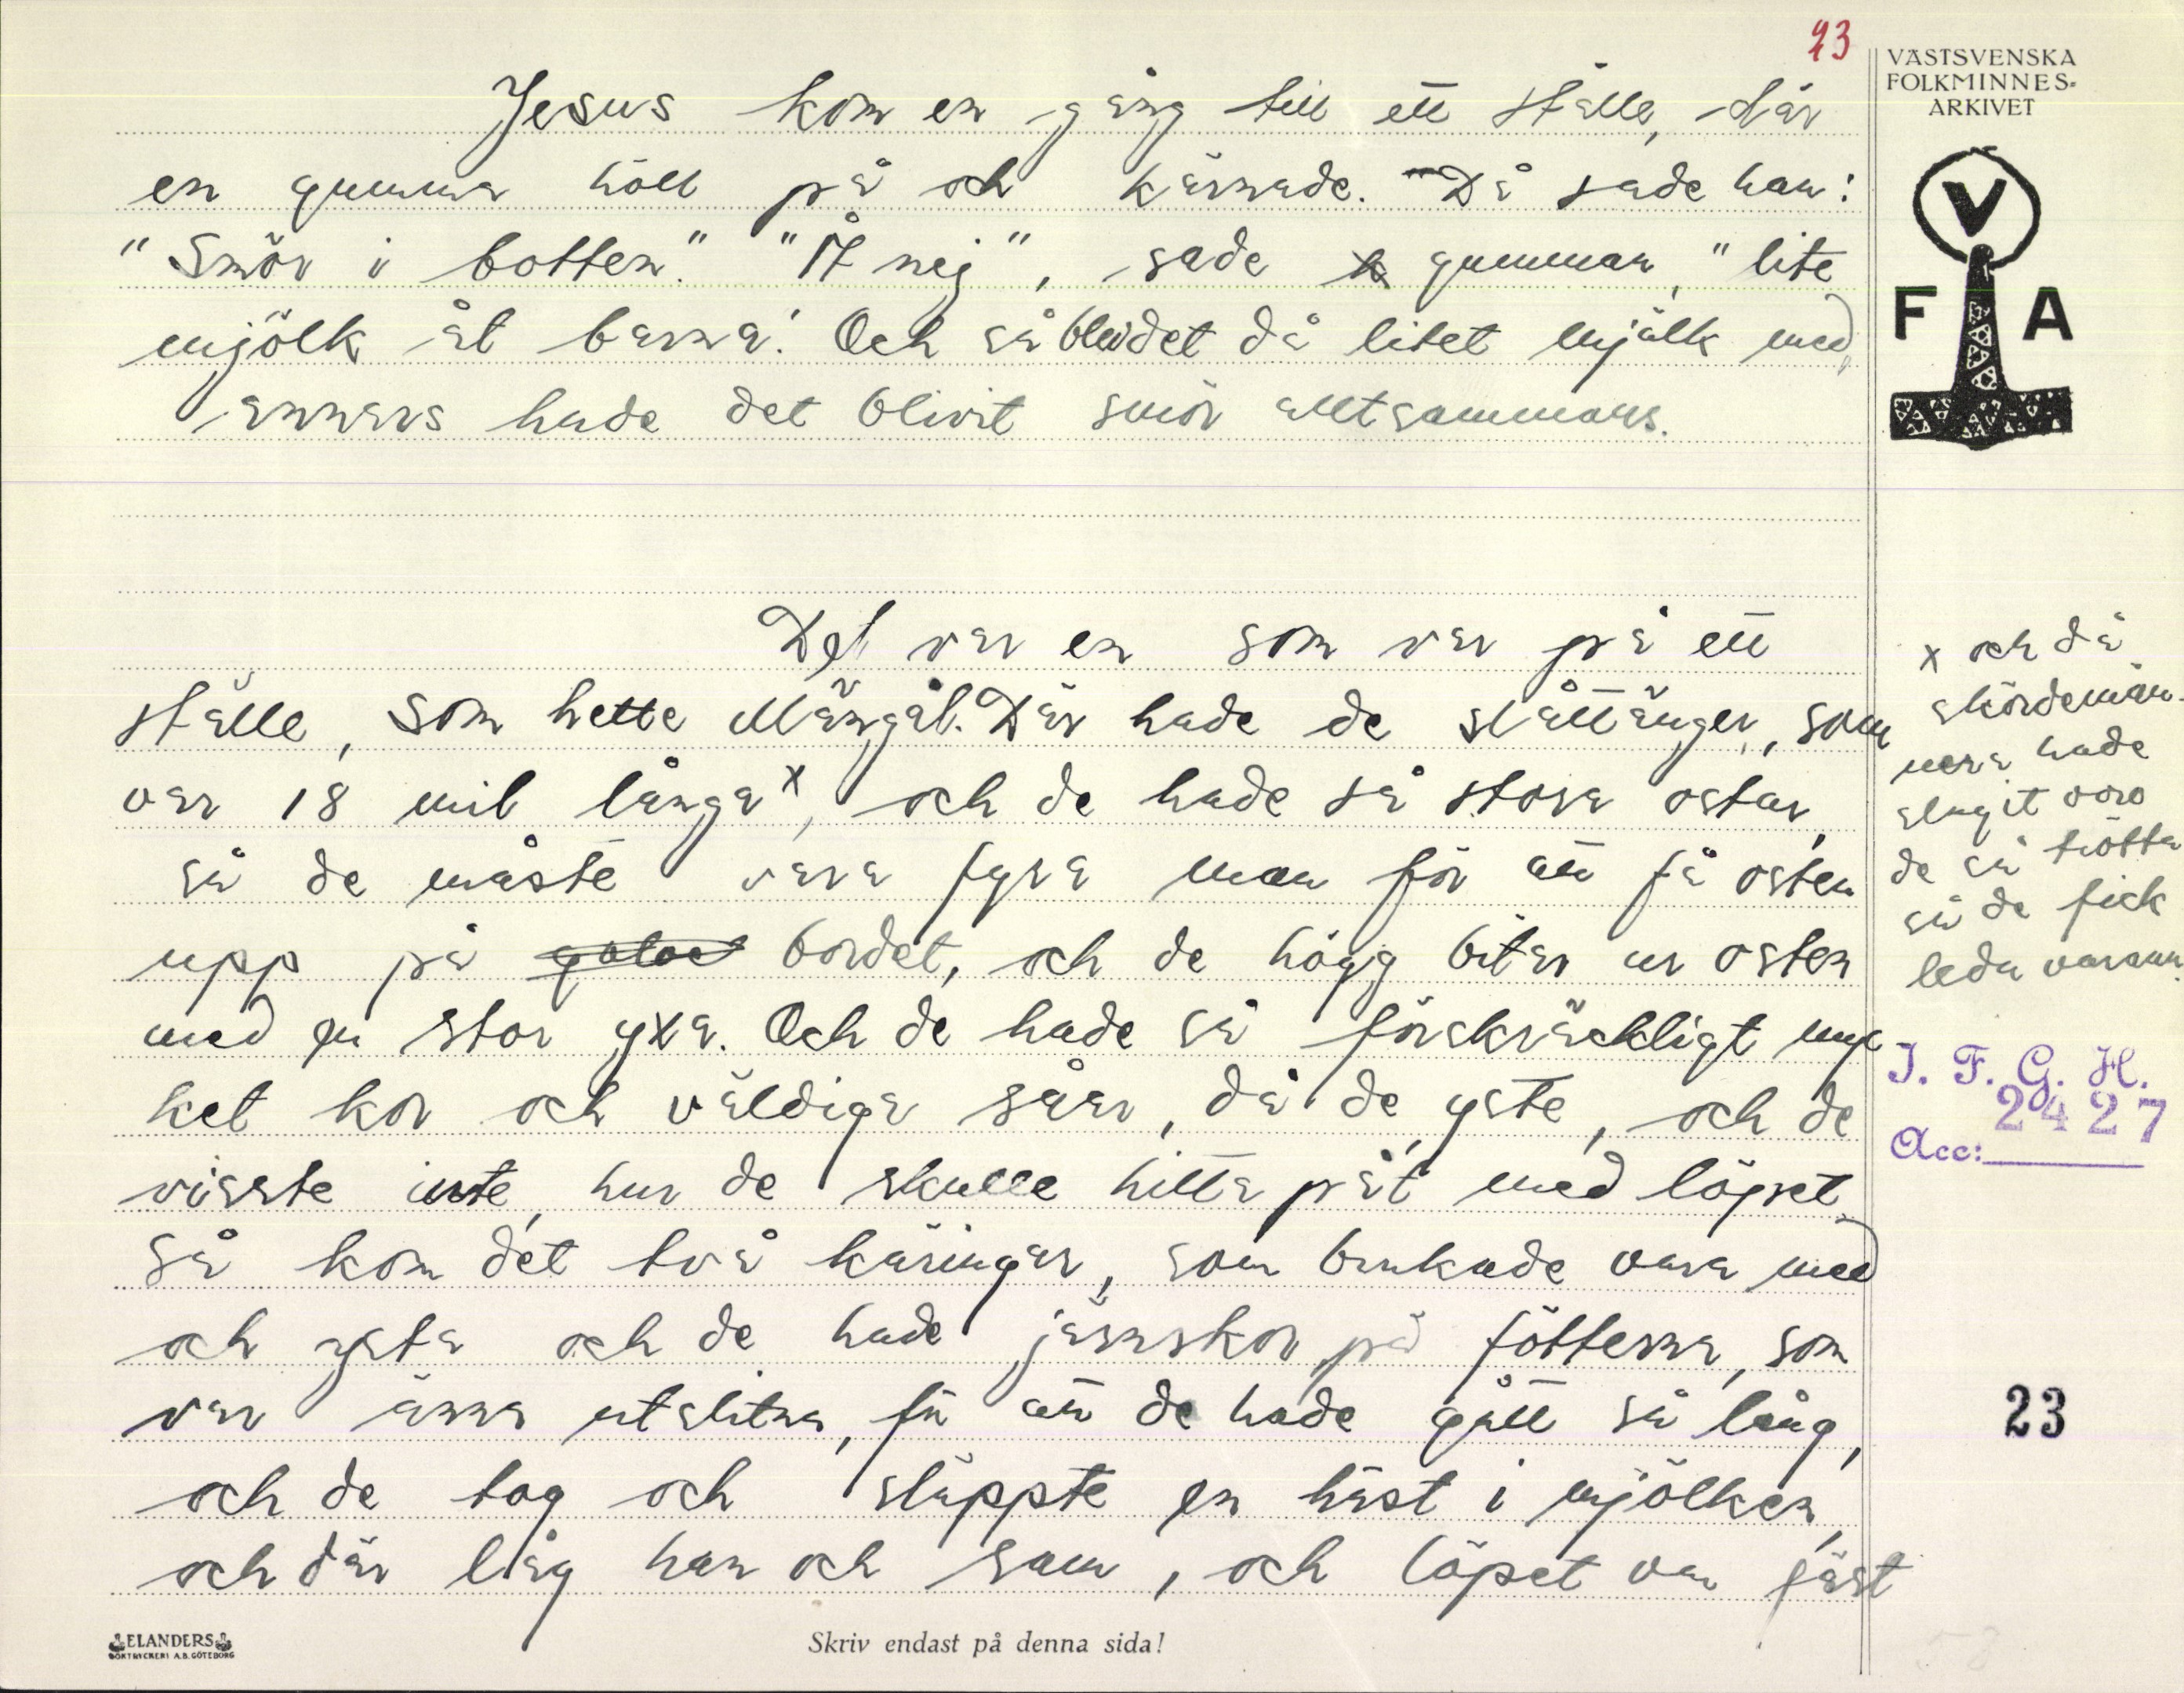 23
VÄSTSVENSKA
FOLKMINNES-
ARKIVET
V
F A
Jesus kom en gång till ett ställe, där
en gumma höll på och kärnade. Då sade han:
"Smör i botten." "Åt nej", sade gumman, "lite
mjölk åt barna'. Och så blev det då litet mjölk med,
annars hade det blivit smör alltsammans.
Det var en som var på ett
ställe, som hette Mångål. Där hade de slåttänger, som
var 18 mil långa x, och de hade så stora ostar,
så de måste vara fyra man för att få osten
upp på golvet bordet, och de högg bitar ur osten
med en stor yxa. Och de hade så förskräckligt myc
ket kor och väldiga såar, då de yste, och de
visste inte, hur de skulle hitta på't med löpet.
Så kom det två käringar, som brukade vara med
och ysta och de hade järnskor på fötterna, som
var änna utslitna, för att de hade gått så lång,
och de tog och släppte en häst i mjölken,
och där låg han och sam, och löpet var fäst
x och då
skördemän-
nera hade
slagit voro
de så trötta
så de fick
leda varann.
I. F. G. H.
2427
Acc:
23
ELANDERS
BOKTRYCKERI A.B. GÖTEBORG
Skriv endast på denna sida!